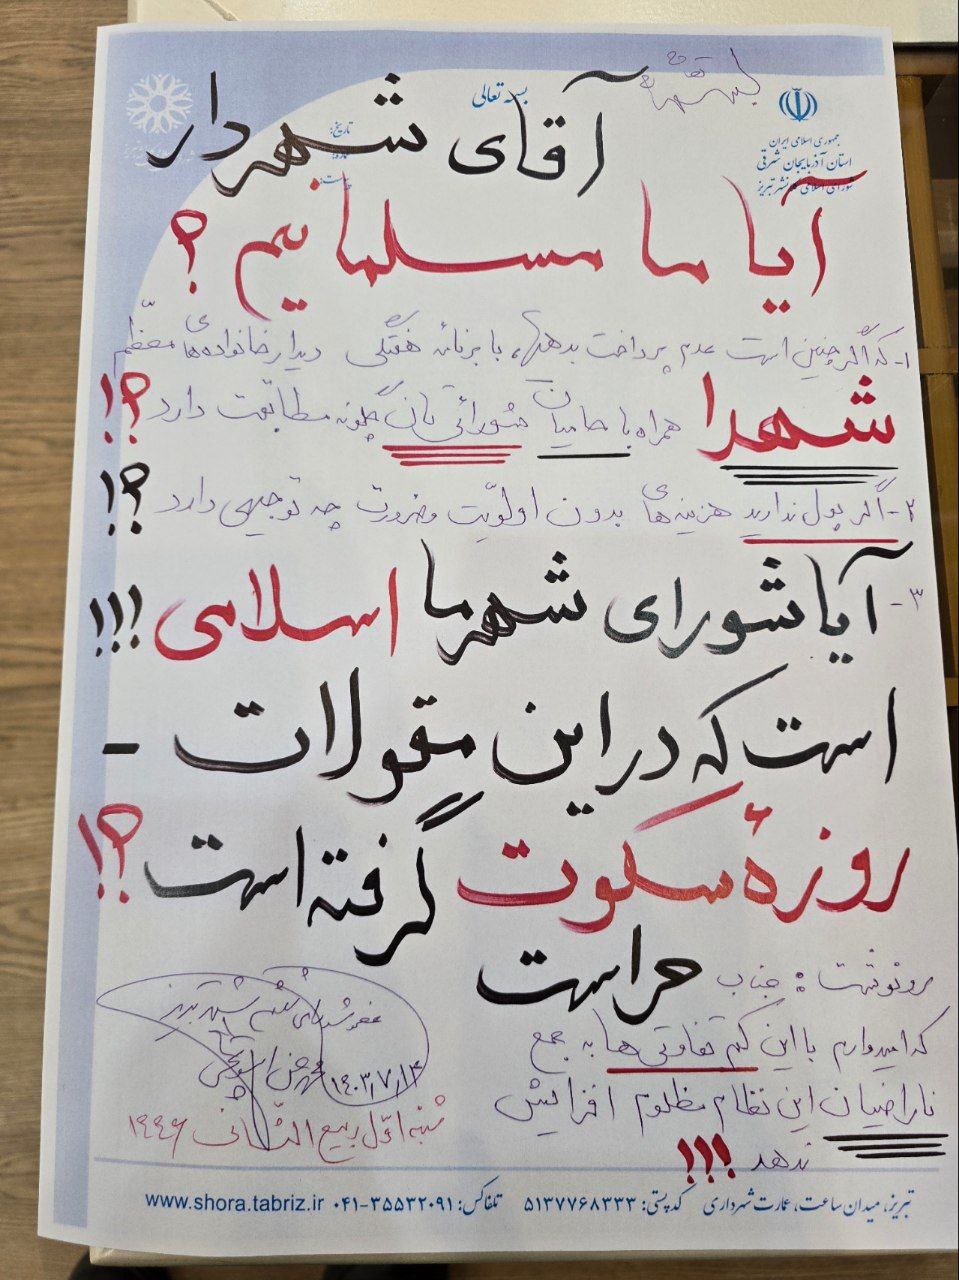 بسمه تعالی
جمهوری اسلامی ایران
استان آذربایجان شرقی
شورای اسلامی کلانشهر تبریز
تاریخ:
آقای شهردار
آیا ما مسلمانیم ؟
۱- که اگر چنین است عدم پرداخت بدهیها، با برنامه هفتگی دیدار خانواده‌های معظّم
شهدا همراه با حامیان شورائی تان چگونه مطابقت دارد ؟!
۲- اگر پول ندارید هزینه‌های بدون اولویّت و ضرورت چه توجیهی دارد ؟!
۳- آیا شورای شهر ما اسلامی !!!
است که در این مقولات -
روزهٔ سکوت گرفته است ؟!
رونوشت : جناب حراست
که امیدوارم با این کم تفاوتی‌ها به جمع
ناراضیان این نظام مظلوم افزایش
ندهد !!!
عضو شورای ششم شهر تبریز
۱۴۰۳/۷/۱۴
شنبه اوّل ربیع الثانی ۱۴۴۶
تبریز، میدان ساعت، عمارت شهرداری کدپستی: ۵۱۳۷۷۶۸۳۳۳ تلفاکس: ۰۴۱-۳۵۵۳۲۰۹۱ www.shora.tabriz.ir